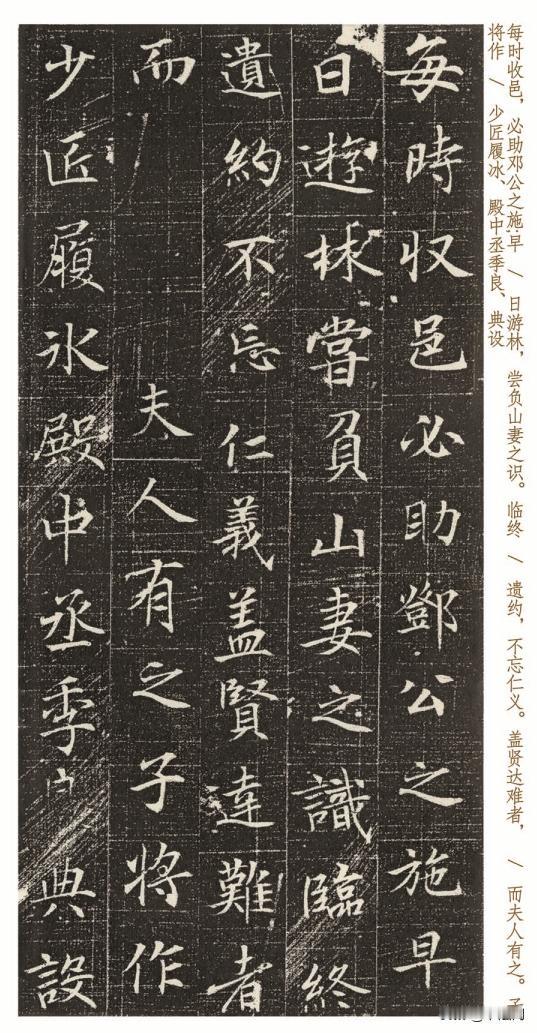 每时收邑，必助邓公之施.早 \ 日游林，尝负山妻之识。临终 \ 遗约，不忘仁义。盖贤达难者， \ 而夫人有之。子
将作 \ 少匠履冰、殿中丞季良、典设
每時収邑必助鄧公之施早
日遊林嘗負山妻之識臨終
遺約不忘仁義盖賢達難者
而夫人有之子将作
少匠履氷殿中丞季典設